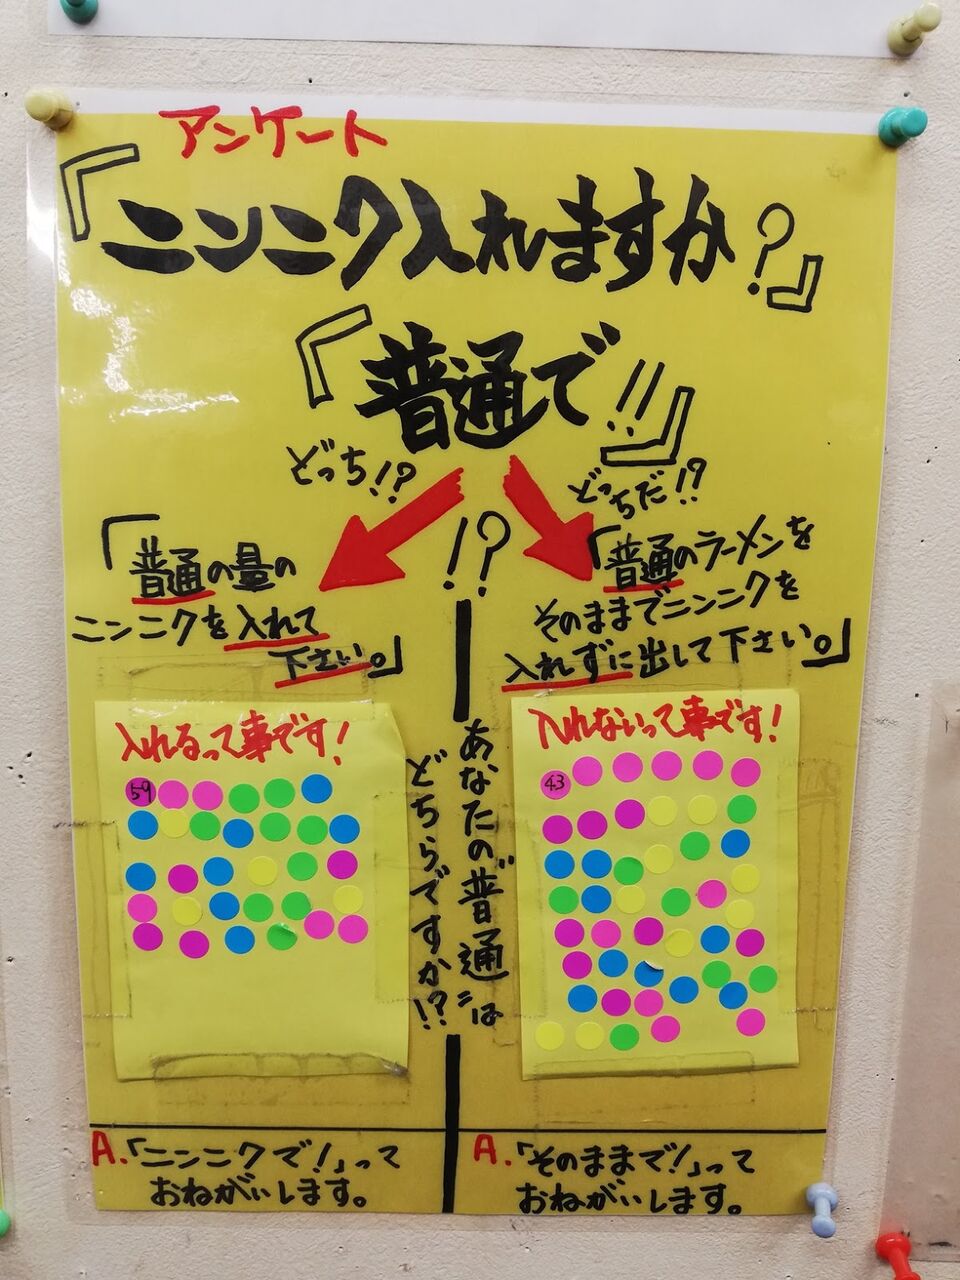 アンケート
『ニンニク入れますか?』
『普通で!!』
どっち!?
どっちだ!?
!?
「普通の量の
ニンニクを入れて
下さい。」
「普通のラーメンを
そのままでニンニクを
入れずに出して下さい。」
入れるって事です!
59
入れないって事です!
43
あなたの"普通"は
どちらですか!?
A.「ニンニクで!」って
おねがいします。
A.「そのままで!」って
おねがいします。